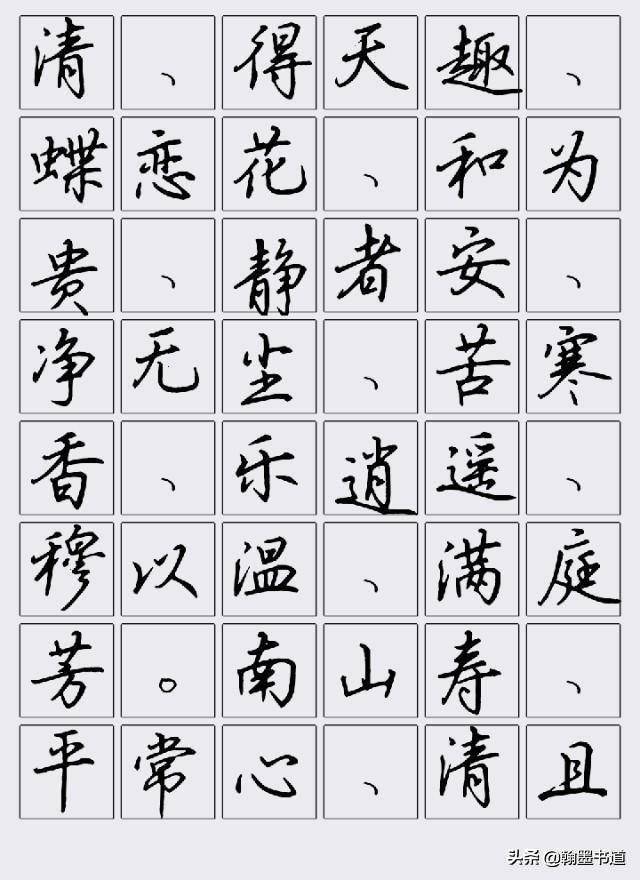 清、得天趣、
蝶恋花、和为
贵、静者安、
净无尘、苦寒
香、乐逍遥、
穆以温、满庭
芳。南山寿、
平常心、清且
头条 @翰墨书道